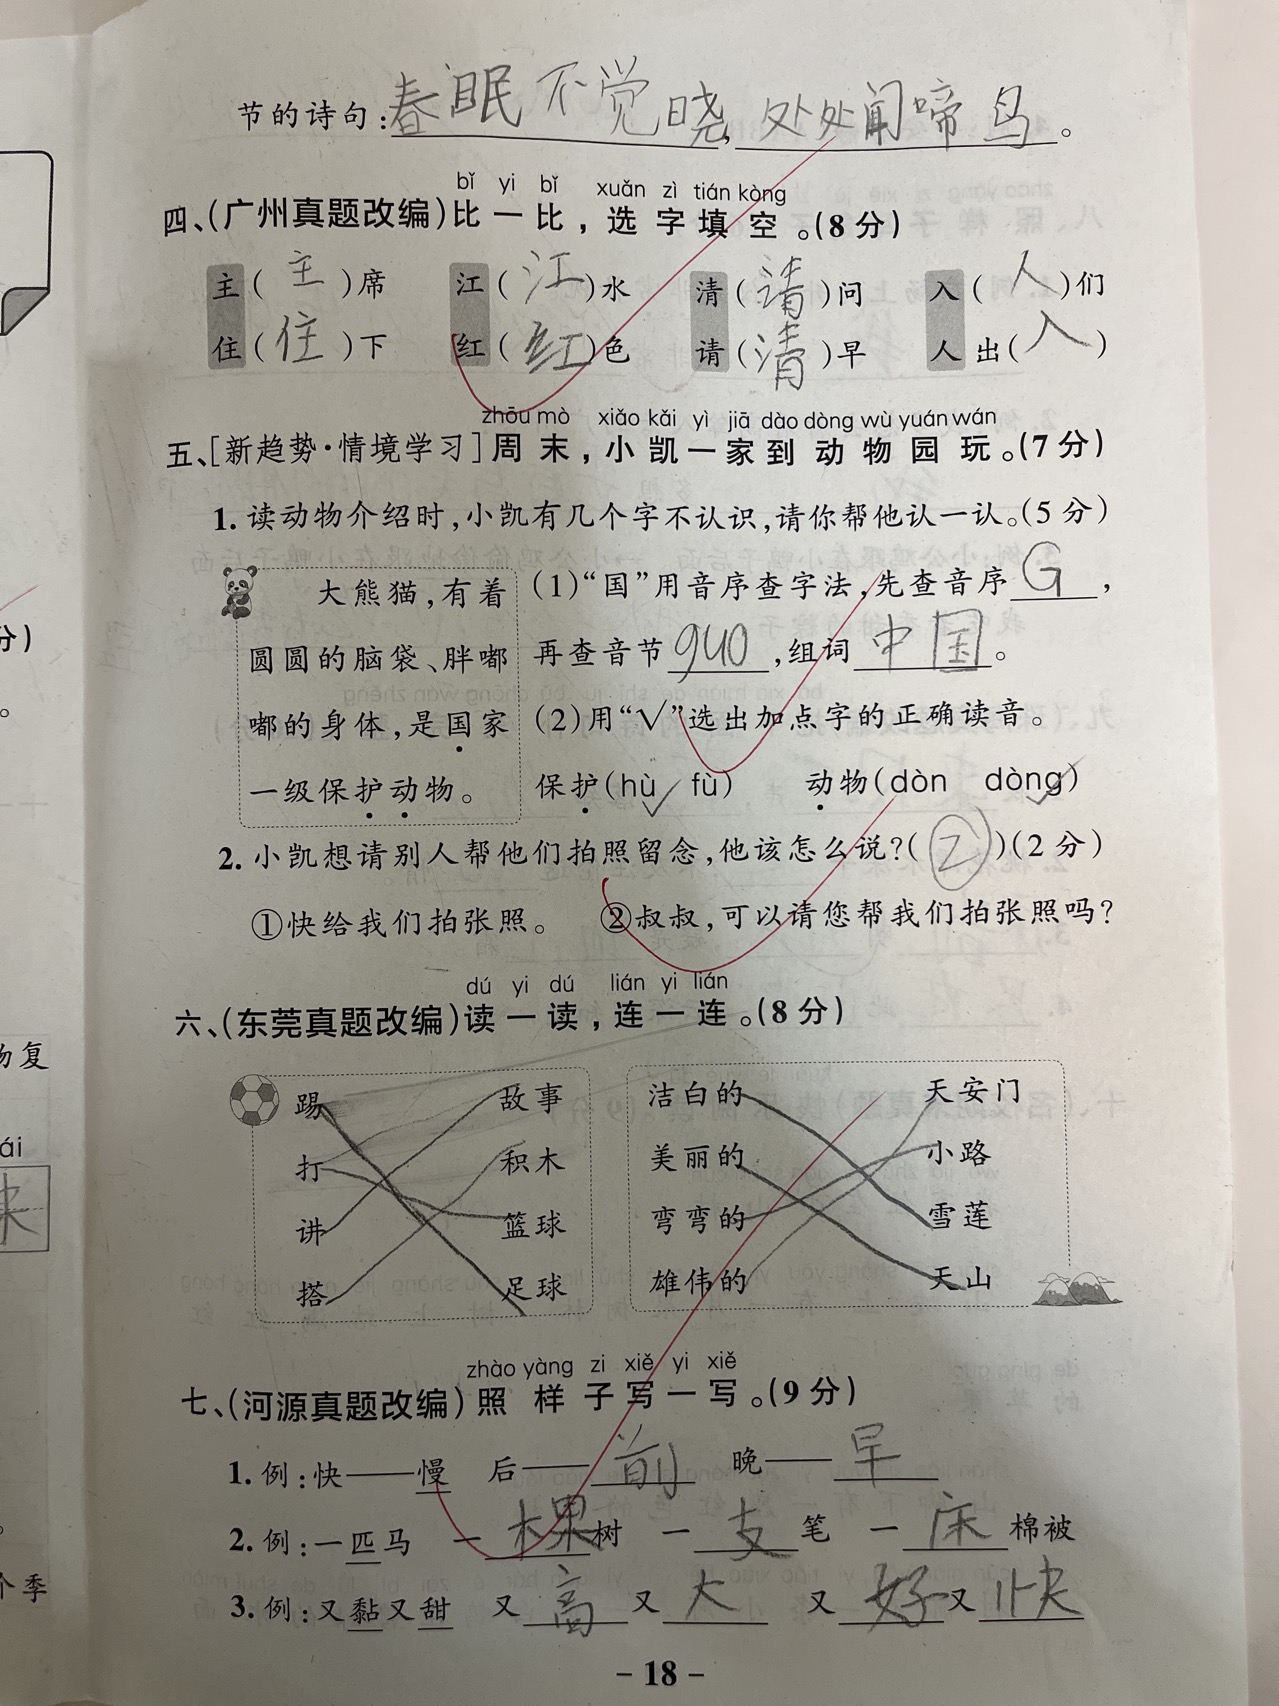 节的诗句:春眠不觉晓,处处闻啼鸟。
bǐ yi bǐ xuǎn zì tián kòng
四、(广州真题改编)比一比,选字填空。(8分)
主(主)席 江(江)水 清(请)问 入(人)们
住(住)下 红(红)色 请(清)早 人 出(入)
zhōu mò xiǎo kǎi yì jiā dào dòng wù yuán wán
五、[新趋势·情境学习]周末,小凯一家到动物园玩。(7分)
1. 读动物介绍时,小凯有几个字不认识,请你帮他认一认。(5分)
大熊猫,有着
圆圆的脑袋、胖嘟
嘟的身体,是国家
一级保护动物。
(1)“国”用音序查字法,先查音序G,
再查音节guo,组词中国。
(2)用“√”选出加点字的正确读音。
保护(hù✓ fù) 动物(dòn dòng✓)
2. 小凯想请别人帮他们拍照留念,他该怎么说?(②)(2分)
①快给我们拍张照。 ②叔叔,可以请您帮我们拍张照吗?
dú yi dú lián yi lián
六、(东莞真题改编)读一读,连一连。(8分)
踢 故事 洁白的 天安门
打 积木 美丽的 小路
讲 篮球 弯弯的 雪莲
搭 足球 雄伟的 天山
zhào yàng zi xiě yi xiě
七、(河源真题改编)照样子写一写。(9分)
1. 例:快——慢 后——前 晚——早
2. 例:一匹马 一棵树 一支笔 一床棉被
3. 例:又黏又甜 又高又大 又好又快
- 18 -
分)
。
物复
ái
快
。
个季